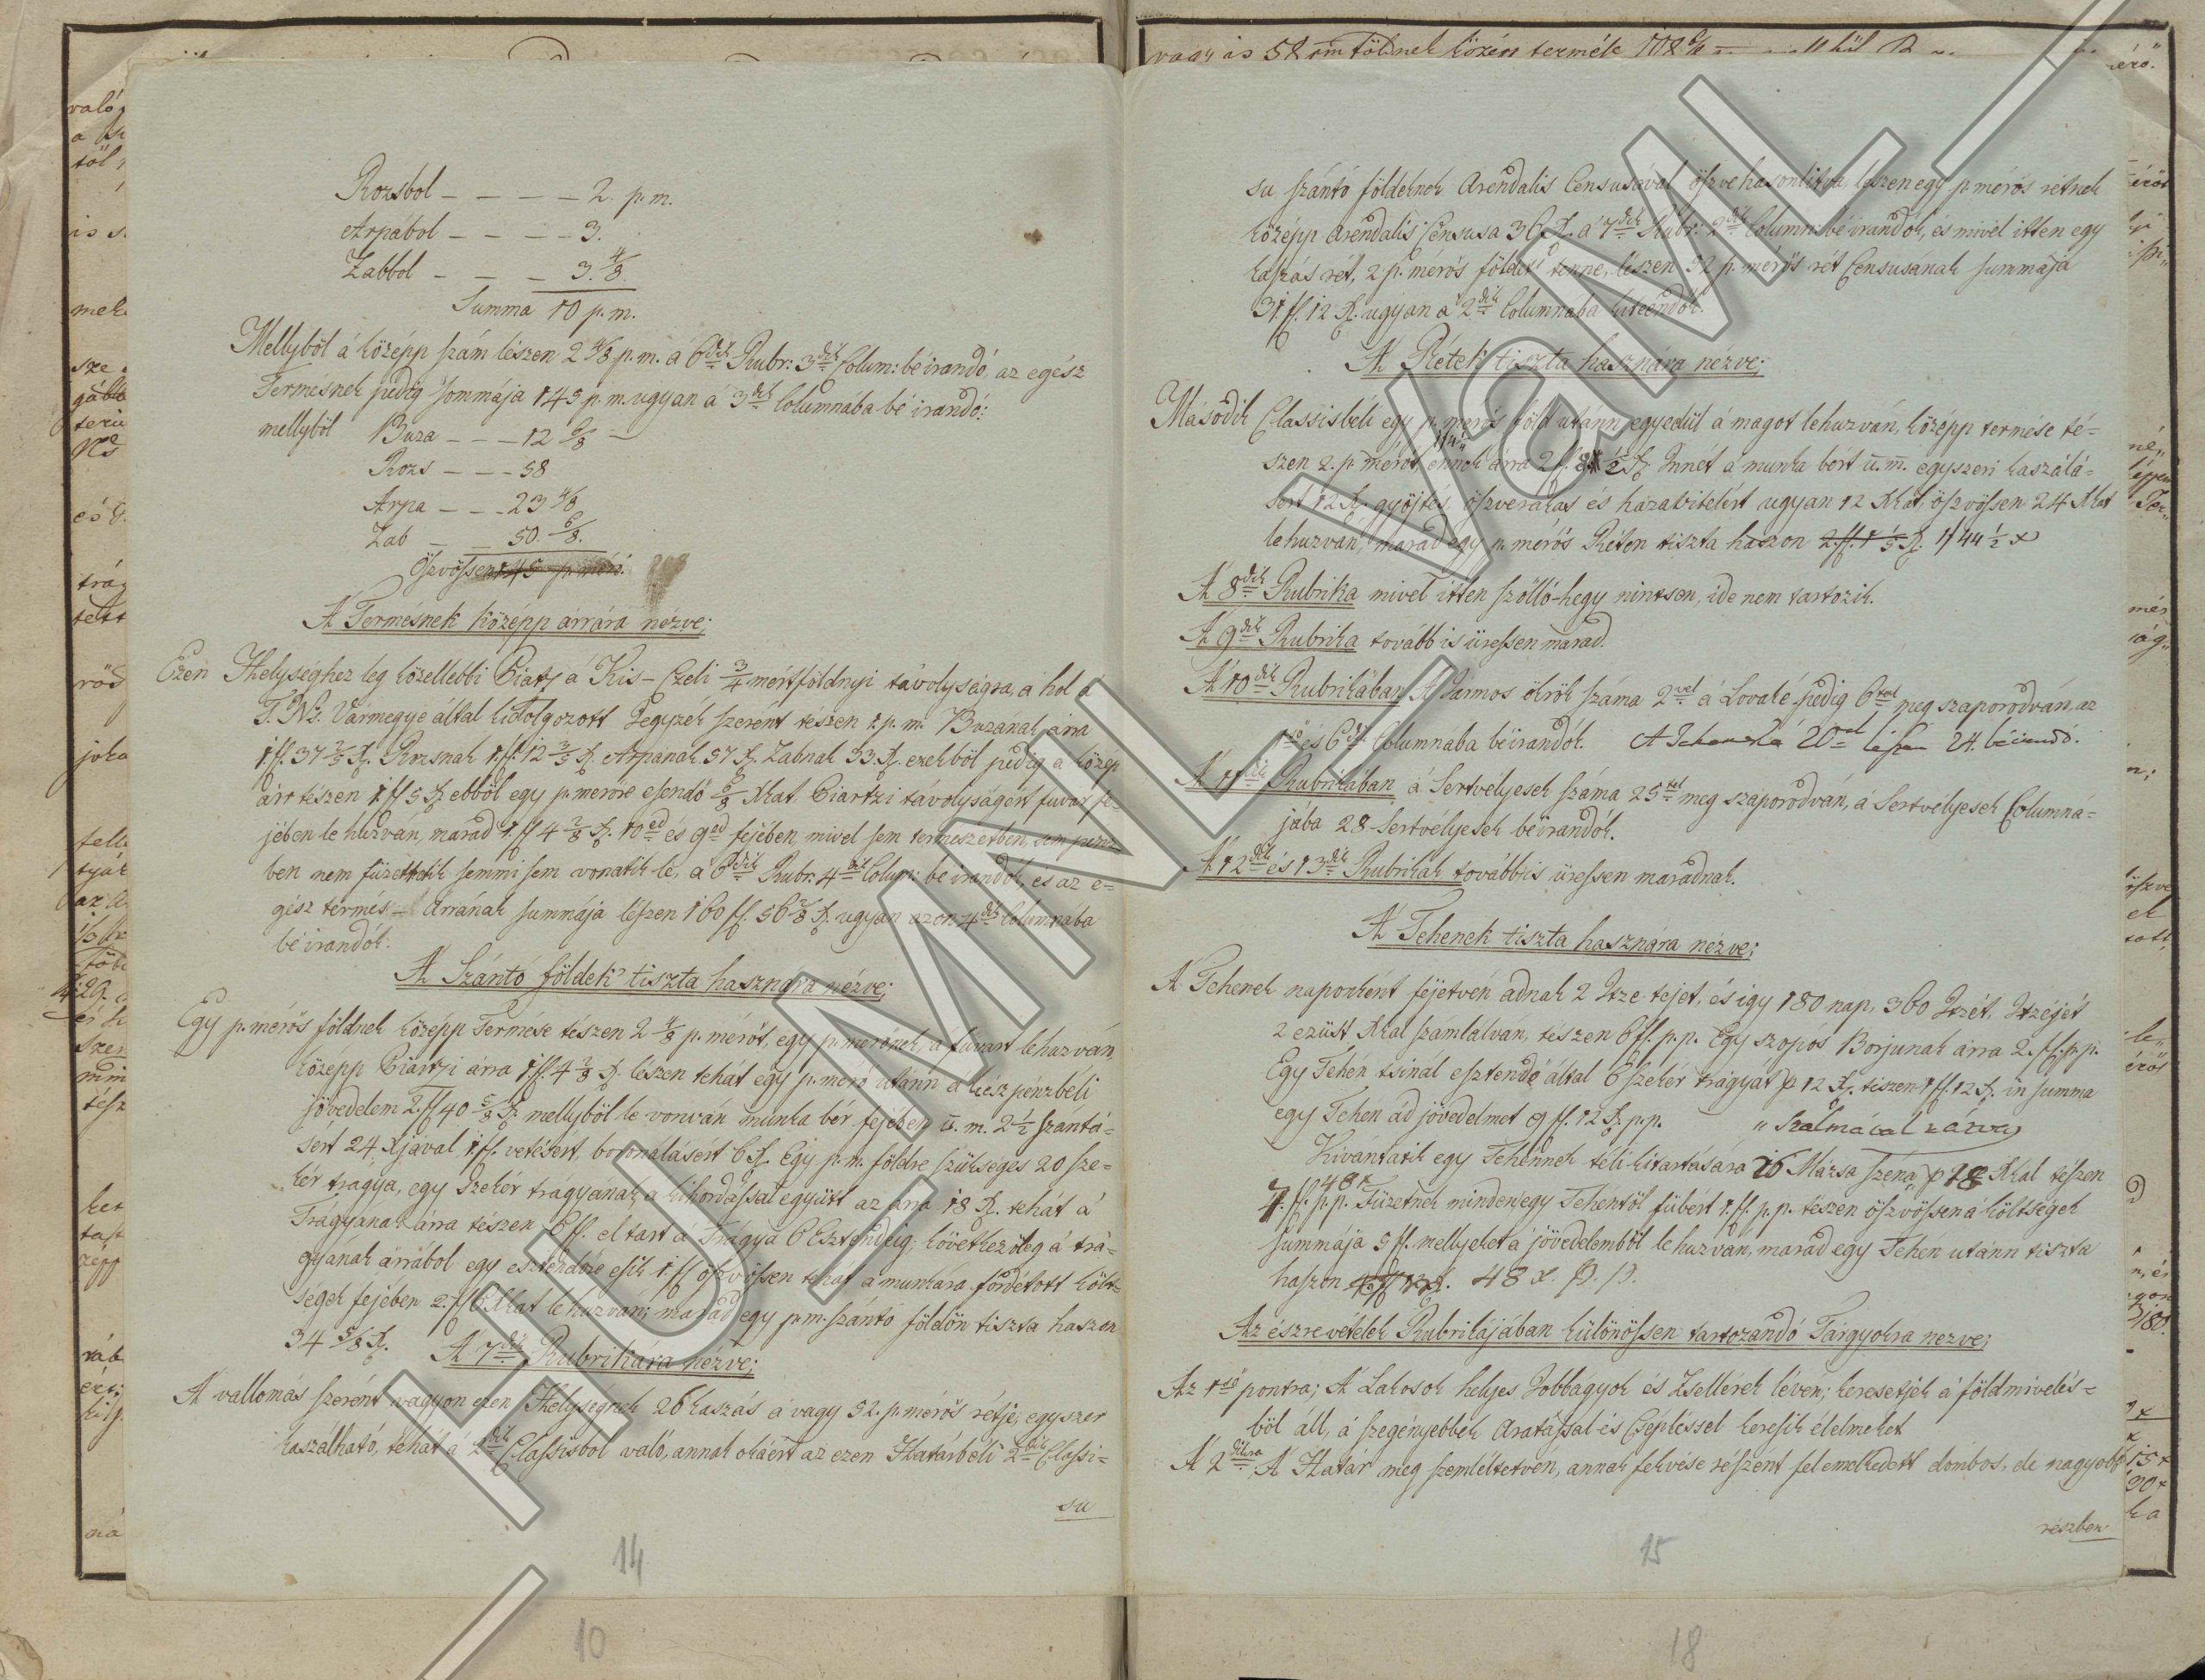 Rozsbol – – – – 2. p. m.
Arpábol – – – – 3.
Zabbol – – – 3. 4/8
Summa 10 p. m.
Mellyböl á középp szám lészen 2 4/8 p. m. á 6dik Rubr: 3dik Colum: béirandó, az egész
Termésnek pedig Sommája 145 p. m. ugyan á 3dik Columnába bé irandó:
mellyböl Buza – – – 12 6/8
Rozs – – – 58
Arpa – – – 23 4/8
Zab – – 50. 6/8.
Öszvössen 145 p. mérő.
A' Termésnek középp árrára nézve;
Ezen Helységhez leg közellebbi Piatz á Kis-Czeli 3/4 mértföldnyi távolyságra, á hol á
T. Ns. Vármegye által kidolgozott Jegyzék szerént tészen 1. p. m. Buzának árra
1 ff. 37 3/5 X. Rozsnak 1. ff. 12 3/5 X. Arpának 57 X. Zabnak 33. X. ezekböl pedig a közép
árr tészen 1 ff 5 X ebböl egy p. merőre esendő 6/8 Xkat. Piartzi távolyságért fuvar fe-
jében le huzván, marad 1. ff 4 2/8 X. 10ed és 9ed fejében, mivel sem természetben, sem pénz-
ben nem füzettetik semmi sem vonatik le, á 6dik Rubr. 4dik Colum: bé irandók, és az e-
gész termés Árrának summája lészen 160 ff. 56 2/8 X. ugyan azon 4dik Columnába
bé irandók.
A' Szántó földek' tiszta hasznára nézve;
Egy p. mérős földnek középp Termése tészen 2 4/8 p. mérőt, egy p. mérőnek, á fuvart lehuzván
középp Piartzi árra 1. ff. 4 2/8 X. lészen tehát egy p. mérő utánn á kész pénzbéli
jövedelem 2. ff 40 5/8 X mellyböl le vonván munka bér fejében u. m. 2 1/2 szántá-
sért 24 Xjával 1 ff. vetésért, boronálásért 6 X. Egy p. m. földre szükséges 20 sze-
kér trágya, egy szekér trágyának á kihordással együtt az árra 18 X. tehát á
Trágyának árra tészen 6 ff. el tart á Trágya 6 Esztendeig; következőleg á trá-
gyának árrából egy esztendőre esik 1. ff öszvössen tehát á munkára fordétott költ-
ségek fejében 2. ff 6 Xkat lehuzván; marad egy p. m. szántó földön tiszta haszon
34 5/8 X.
A' 7dik Rubrikára nézve;
A' vallomás szerént vagyon ezen Helységnek 26 kaszás á vagy 52. p. mérős rétje, egyszer
kaszálható, tehát á 2dik Classisbol való, annak okáért az ezen Határbéli 2dik Classi-
su
14
10
su szántó földeknek Arendalis Censusával öszvehasonlitva, lészen egy p. mérős rétnek
középp Arendalis Censusa 36 X. á 7dik Rubr: 2dik Column: béirandók, és mivel itten egy
kaszás rét, 2 p. mérős földet tenne, lészen 52 p. mérős rét Censusának summája
31 ff. 12 X. ugyan á 2dik Columnába kiteendők.
A' Rétek tiszta hasznára nézve;
Második Classisbéli egy p. merős föld utánn, egyedül á magot lehuzván, középp termése té-
szen 2. p. mérőt, ennek árra 2 ff. 8 1/2 X. Innét á munka bért u. m. egyszeri kaszálá-
sért 12 X. gyöjtés, öszverakas és házavitelért ugyan 12 Xkat, öszvössen 24 Xkat
lehuzván, marad egy p. mérős Réten tiszta haszon 2. ff. 1 1/5 X. 1 f 44 1/2 x
A' 8dik Rubrika mivel itten szölló-hegy nintsen, ide nem tartozik.
A' 9dik Rubrika tovább is üressen marad.
A' 10dik Rubrikában A Jármos ökrök száma 2vel á Lovaké pedig 6tal meg szaporodván, az
1ső és 6dik Columnába béirandók. A Teheneké 20al lészen 24. béirandó.
A' 11dik Rubrikában á Sertvélyesek száma 25tel meg szaporodván, á Sertvélyesek Columná-
jába 28 Sertvélyesek béirandók.
A' 12dik és 13dik Rubrikák továbbis üressen maradnak.
A' Tehenek tiszta hasznára nézve;
A' Tehenek naponként fejetvén adnak 2 Itze tejet, és igy 180 nap, 360 Itzét, Itzéjét
2 ezüst Xkal számlálván, tészen 6 ff. p. p. Egy szopós Borjunak árra 2. ff. p. p.
Egy Tehén tsinál esztendő által 6 szekér trágyát p 12 X. tészen 1 ff. 12 X. in summa
egy Tehén ád jövedelmet 9 ff. 12 X. p. p. „ Szalmával zárva
Kivántatik egy Tehénnek téli kitartására 26 Mázsa széna p 18 Xkal tészen
7. ff. 48 x. p. p. Füzetnek minden egy Tehéntöl fübért 1. ff. p. p. tészen öszvössen á költségek
summája 5 ff. mellyeket á jövedelemböl lehuzván, marad egy Tehén utánn tiszta
haszon 4 ff 12 X. 48 x. P. P.
Az észrevételek Rubrikájában különössen tartozandó Tárgyokra nezve;
Az 1ső pontra; A' Lakosok helyes Jobbágyok és Zsellérek lévén; keresetjek á földmivelés-
böl áll, á szegényebbek Aratással és Csépléssel keresik élelmeket
A' 2dikra A' Határ meg szemléltetvén, annak fekvése részént felemelkedett dombos, de nagyobb
részben
15
18
HU_MNL_VaML_